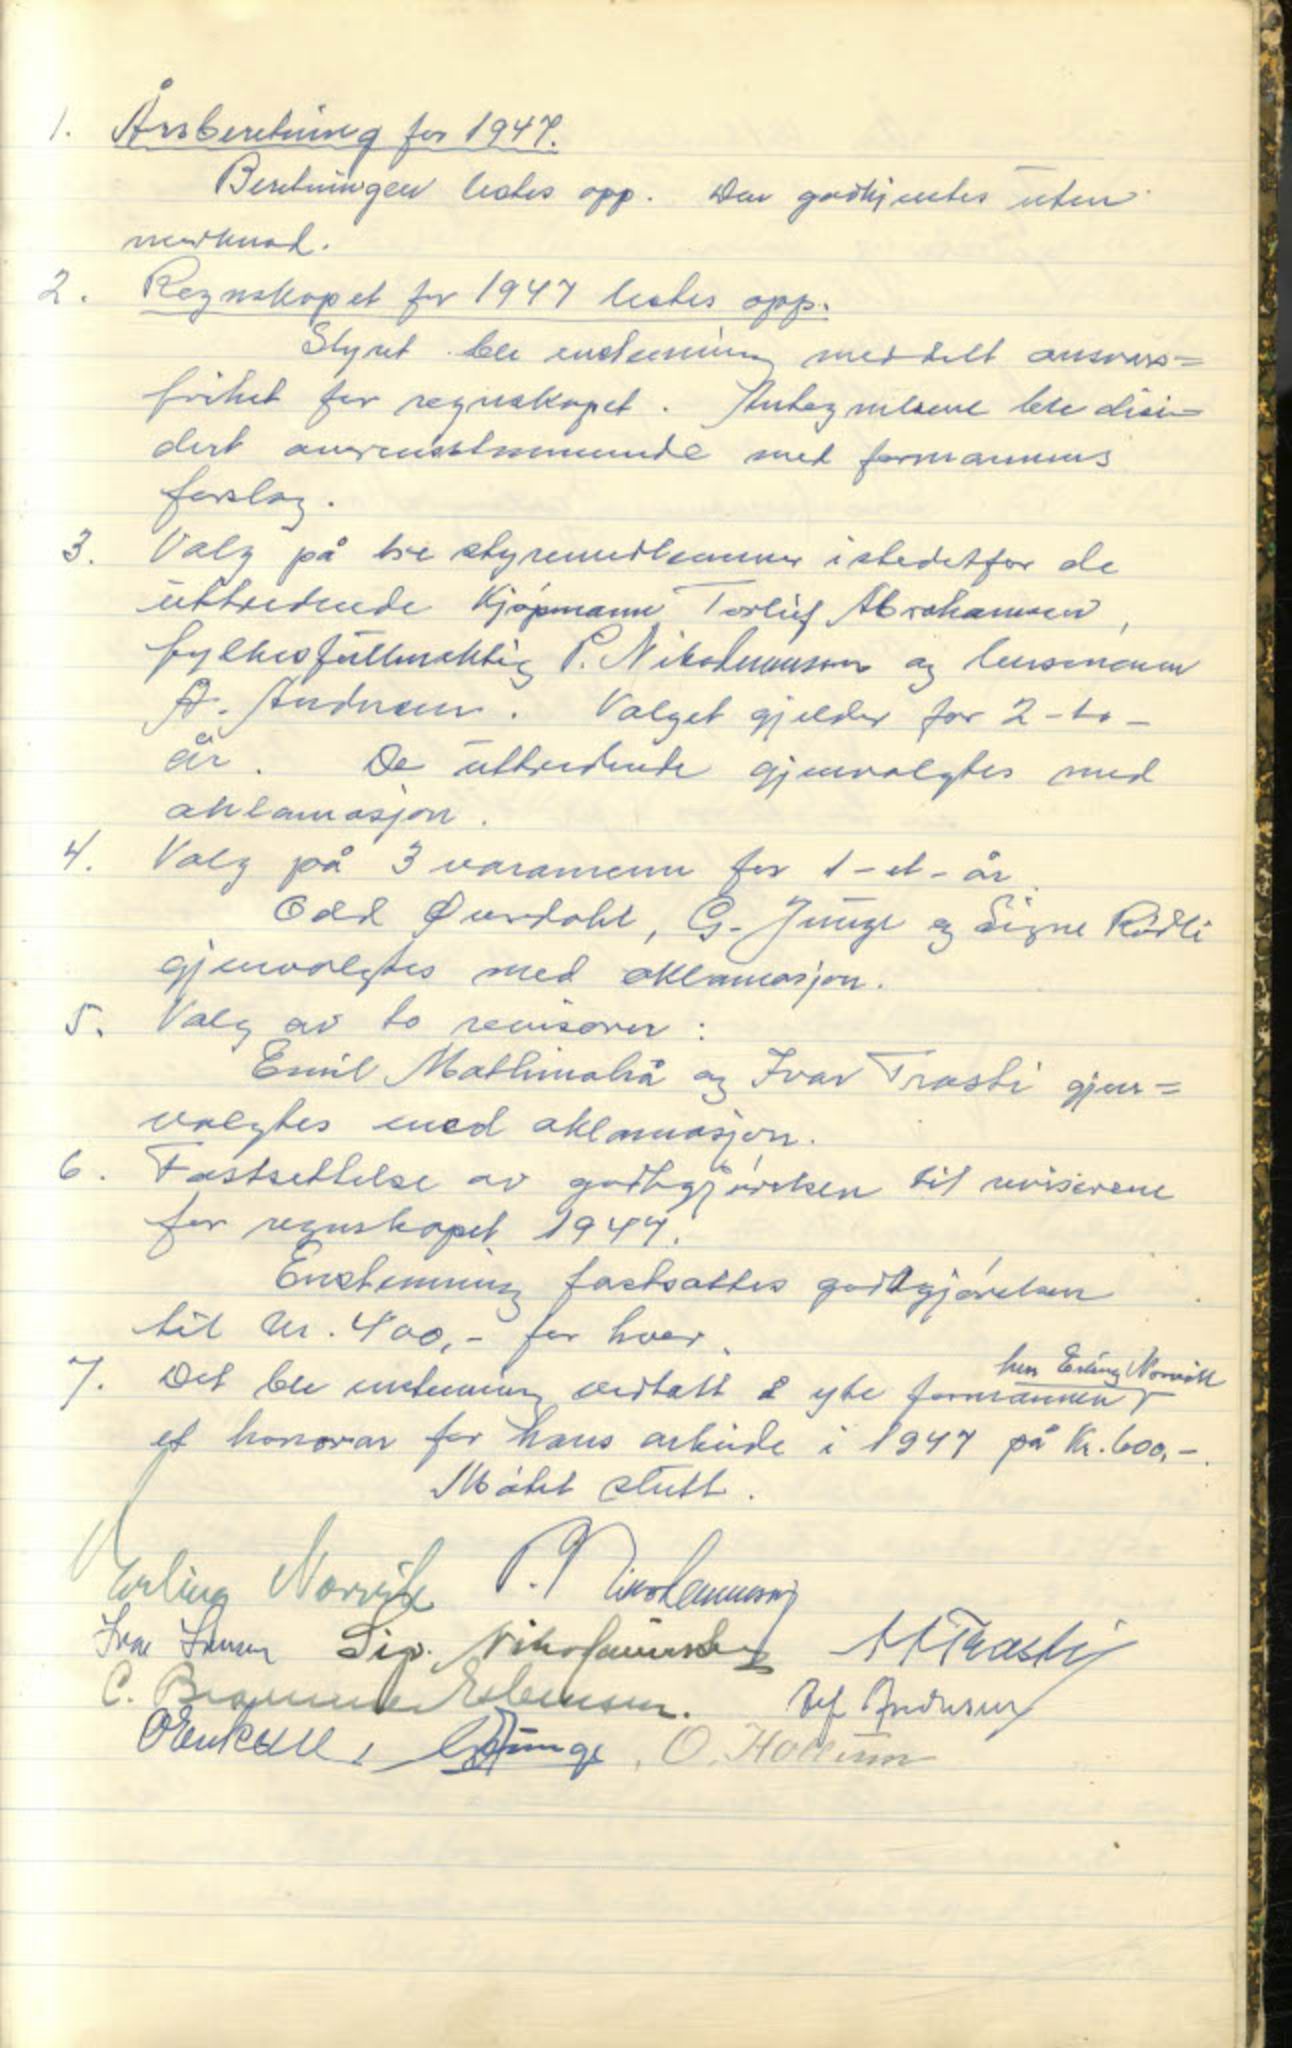 1. Årsberetning for 1947.
Beretningen lestes opp. Den godkjentes uten
merknad.
2. Regnskapet for 1947 lestes opp.
Styret ble enstemmig meddelt ansvars=
frihet for regnskapet. Antegnelsene ble desi-
dert overensstemmende med formannens
forslag.
3. Valg på tre styremedlemmer istedetfor de
uttredende kjøpmann Torleif Abrahamsen,
fylkesfullmektig P. Nikolaunsen og lensmann
A. Andresen. Valget gjelder for 2-to-
år. De uttredende gjenvalgtes med
aklamasjon.
4. Valg på 3 varamenn for 1-et-år.
Odd Øverdahl, G. Junge og Signe Rödli
gjenvalgtes med aklamasjon.
5. Valg av to revisorer:
Emil og Ivar Trasti gjen=
valgtes med aklamasjon.
6. Fastsettelse av godtgjörelsen til revisorene
for regnskapet 1947.
Enstemmig fastsattes godtgjörelsen
til kr. 400,- for hver.
herr Erling Norvik
7. Det ble enstemmig vedtatt å yte formannen
et honorar for hans arbeide i 1947 på kr. 600,-.
Mötet slutt.
Erling Norvik P. Nikolaunsen
Ivar Jensen Sig. Trasti
C. Brammer Esbensen. Alf Andresen
G. Junge, O. Hallum